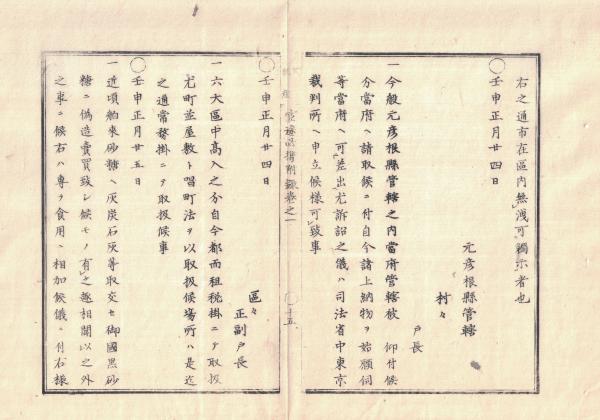 右之通市在區内無洩可觸示者也
〇壬申正月廿四日
元彦根縣管轄
村々
戸長
一今般元彦根縣管轄之内當府管轄被 仰付候
分當府ヘ請取候ニ付自今諸上納物ヲ始願伺
等當府ヘ可差出尤訴訟之儀ハ司法省中東京
裁判所ヘ申立候様可致事
〇壬申正月廿四日
區々
正副戸長
一六大區中高入之分自今都而租税掛ニテ取扱
尤町並屋敷ト唱町法ヲ以取扱候場所ハ是迄
之通常務掛ニテ取扱候事
〇壬申正月廿五日
一近頃舶来砂糖ヘ灰炭石灰等取交セ御國黒砂
糖ニ偽造賣買致シ候モノ有之趣相聞以之外
之事ニ候右ハ専ヲ食用ニ相加候儀ニ付右樣